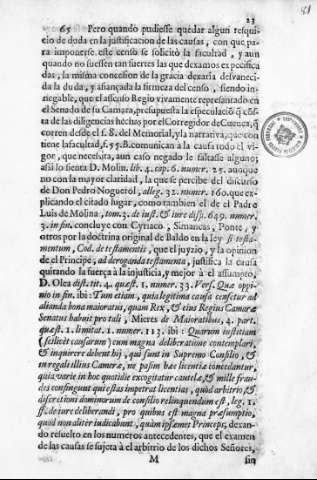 23
65 Pero quando pudiesse quedar algun resqui-
cio de duda en la justificacion de las causas, con que pa-
ra imponerse este censo se solicitò la facultad, y aun
quando no fuessen tan fuertes las que dexamos especifica
das, la misma concesion de la gracia dexaria desvaneci-
da la duda, y afiançada la firmeza del censo, siendo in-
negable, que el assenso Regio vivamente representado en
el Senado de su Camara, presupuesta la especulaciõ q̃ cõs-
ta de las diligencias hechas por el Corregidor de Cuenca, q̃
corren desde el f. 8. del Memorial, y la narrativa, que con
tiene la facultad, f. 55. B. comunican à la causa todo el vi-
gor, que necesita, aun caso negado le faltasse alguno;
assi lo sienta D. Molin. lib. 4. cap. 6. numer. 25. aunque
no con la mayor claridad, la que se percibe del discurso
de Don Pedro Noguerol, alleg. 32. numer. 160. que ex-
plicando el citado lugar, como tambien el de el Padre
Luis de Molina, tom. 3. de iust. & iure disp. 649. numer.
3. in fin. concluye con Cyriaco, Simancas, Ponte, y
otros por la doctrina original de Baldo en la ley si testa-
mentum, Cod. de testamentis, que el juyzio, y la opinion
de el Principe, ad deroganda testamenta, justifica la causa
quitando la fuerça à la injusticia, y mejor à el assumpto,
D. Olea disp. tit. 4. quæst. 1. numer. 33. Vers. Quæ opi-
nio in fin. ibi: Tum etiam, quia legitima causa censetur ad
alienda bona maioratus, quam Rex, & eius Regius Camaræ
Senatus habuit pro tali, Mieres de Maioratibus, 4. part.
quæst. 1. limitat. 1. numer. 113. ibi: Quarum iustitiam
(scilicet causarum) cum magna deliberatione contemplari,
& inquirere debent hij, qui sunt in Supremo Consilio, &
in regali illius Cameræ, ne passim hæc licentia concedantur,
quia varie in hoc quotidie excogitatur cautelæ, & mille frau-
des consingunt qui eas impetrat licentias, quod arbitrio, &
discretioni dominorum de consilio relinquendum est, leg. 1.
ff. de iure deliberandi, pro quibus est magna præsumptio,
quod non aliter iudicabunt, quam ipsemet Princeps, dexan-
do resuelto en los numeros antecedentes, que el examen
de las causas se sujeta à el arbitrio de los dichos Señores,
M sin